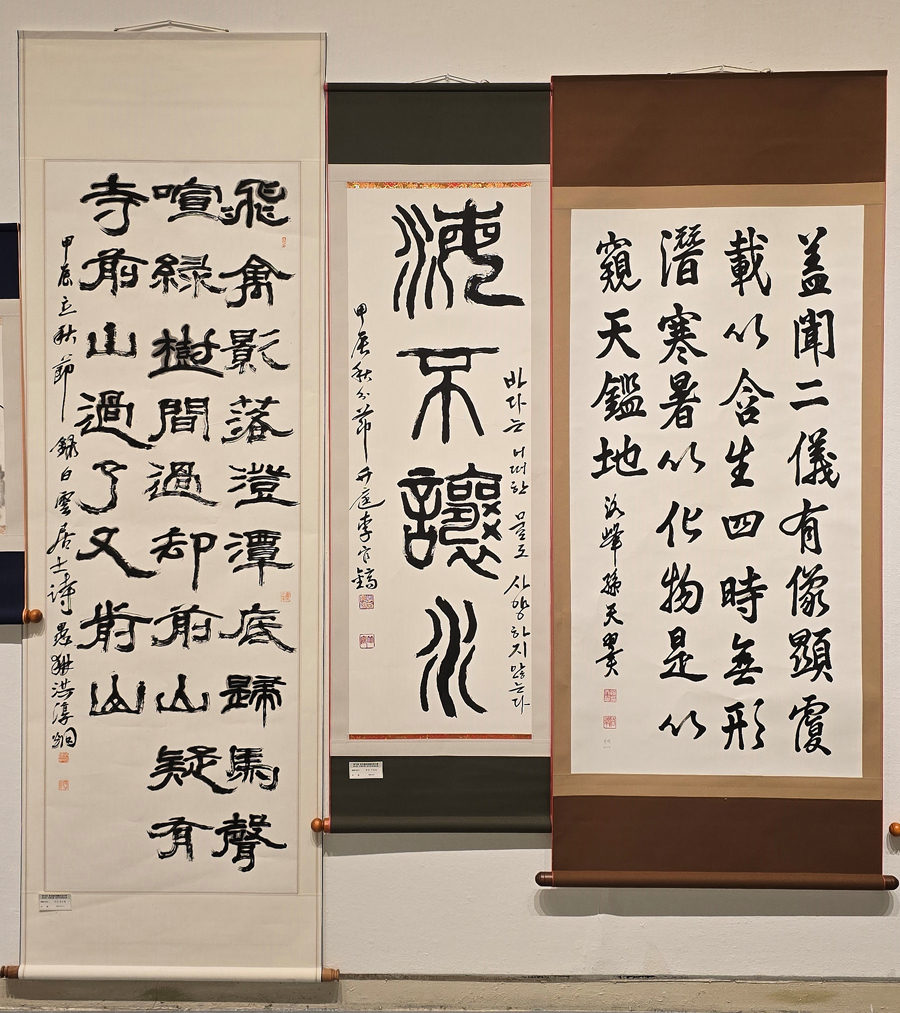 盖聞二儀有像顯覆
載以含生四時無形
潛寒暑以化物是以
窺天鑑地
洛峰孫天翼
바다는 어떠한 물도 사양하지 않는다
海不讓水
甲辰秋分節 李
飛禽影落澄潭底歸馬聲
喧綠樹間過却前山疑有
寺前山過了又前山
甲辰立秋節 錄白雲居士詩 洪淳